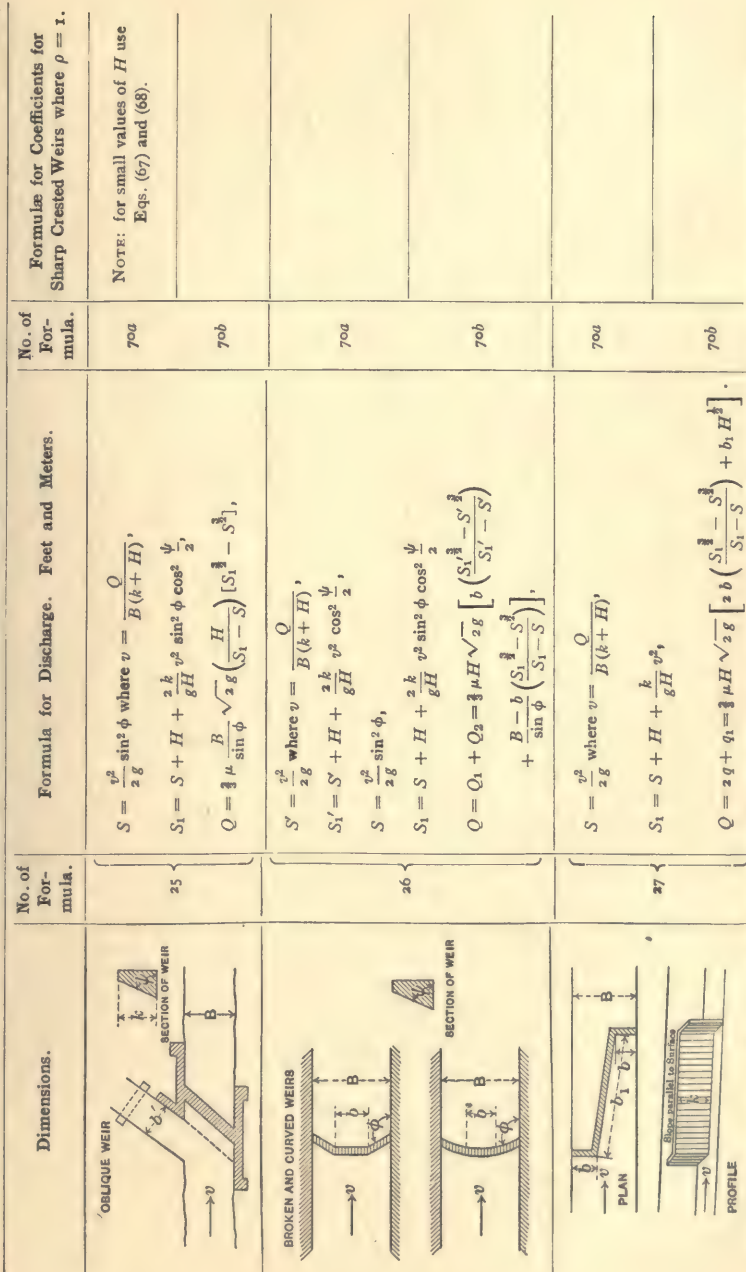 Dimensions.
No. of
For-
mula.
Formula for Discharge. Feet and Meters.
No. of
For-
mula.
Formulæ for Coefficients for
Sharp Crested Weirs where ρ = 1.
OBLIQUE WEIR
b'
k
SECTION OF WEIR
→v
B
25
S = v²/2g sin² ϕ where v = Q/B(k + H),
S₁ = S + H + 2k/gH v² sin² ϕ cos² ψ/2,
Q = ⅔ μ B/sin ϕ √2g (H/S₁ − S) [S₁^3/2 − S^3/2],
70a
70b
NOTE: for small values of H use
Eqs. (67) and (68).
BROKEN AND CURVED WEIRS
→v
b
B
ϕ
→v
b
B
ϕ
SECTION OF WEIR
26
S' = v²/2g where v = Q/B(k + H),
S₁' = S' + H + 2k/gH v² cos² ψ/2,
S = v²/2g sin² ϕ,
S₁ = S + H + 2k/gH v² sin² ϕ cos² ψ/2
Q = Q₁ + Q₂ = ⅔ μH √2g [b (S₁'^3/2 − S'^3/2/S₁' − S')
+ B − b/sin ϕ (S₁^3/2 − S^3/2/S₁ − S)],
70a
70b
b
→v
b₁
b
B
PLAN
Slope parallel to Surface
k
→v
PROFILE
27
S = v²/2g where v = Q/B(k + H),
S₁ = S + H + k/gH v²,
Q = 2q + q₁ = ⅔ μH √2g [2b (S₁^3/2 − S^3/2/S₁ − S) + b₁ H^½].
70a
70b